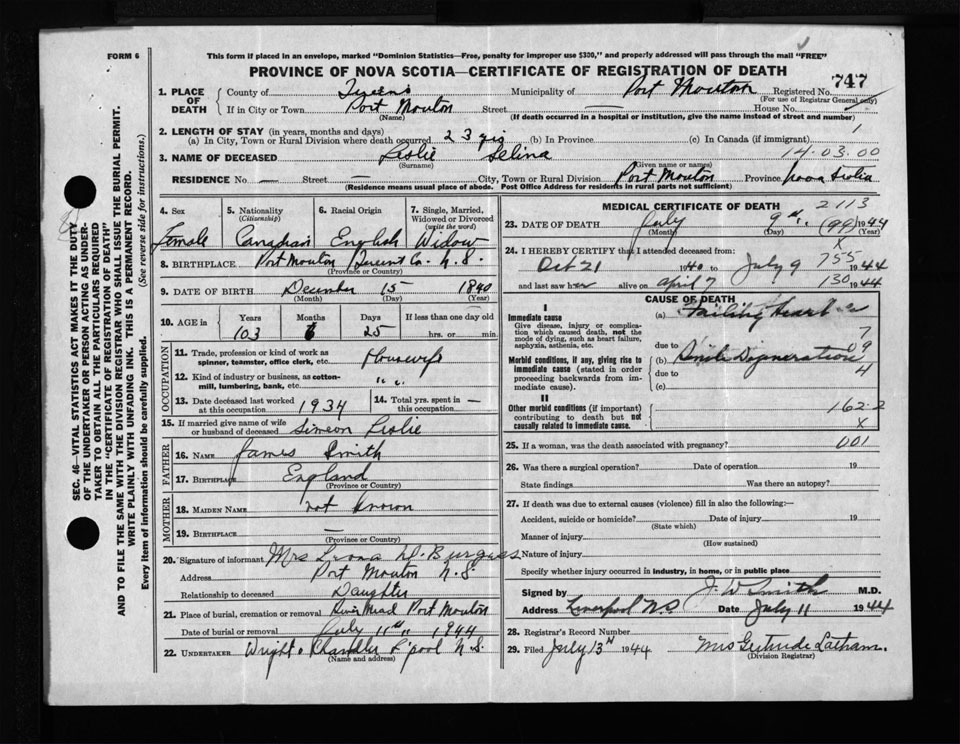 FORM 6
This form if placed in an envelope, marked "Dominion Statistics—Free, penalty for improper use $300," and properly addressed will pass through the mail "FREE"
PROVINCE OF NOVA SCOTIA—CERTIFICATE OF REGISTRATION OF DEATH
747
1. PLACE OF DEATH
County of Queens Municipality of Port Mouton Registered No.
(For use of Registrar General only)
If in City or Town Port Mouton Street — House No. —
(Name) (If death occurred in a hospital or institution, give the name instead of street and number)
2. LENGTH OF STAY (in years, months and days)
(a) In City, Town or Rural Division where death occurred 23 yrs (b) In Province (c) In Canada (if immigrant) 1
3. NAME OF DECEASED Leslie Selina 14.03.00
(Surname) (Given name or names)
RESIDENCE No — Street — City, Town or Rural Division Port Mouton Province Nova Scotia
(Residence means usual place of abode. Post Office Address for residents in rural parts not sufficient)
4. Sex
Female
5. Nationality
(Citizenship)
Canadian
6. Racial Origin
English
7. Single, Married, Widowed or Divorced
(write the word)
Widow
8. BIRTHPLACE Port Mouton Co. N.S.
(Province or Country)
9. DATE OF BIRTH December 15 1840
(Month) (Day) (Year)
10. AGE in
Years Months Days If less than one day old
103 6 25 hrs. or min.
OCCUPATION
11. Trade, profession or kind of work as spinner, teamster, office clerk, etc. Housewife
12. Kind of industry or business, as cotton-mill, lumbering, bank, etc. " "
13. Date deceased last worked at this occupation 1934
14. Total yrs. spent in this occupation —
15. If married give name of wife or husband of deceased Simeon Leslie
FATHER
16. NAME James Smith
17. BIRTHPLACE England
(Province or Country)
MOTHER
18. MAIDEN NAME not known
19. BIRTHPLACE —
(Province or Country)
20. Signature of informant Mrs Burgess
Address Port Mouton N.S.
Relationship to deceased Daughter
21. Place of burial, cremation or removal Port Mouton
Date of burial or removal July 11th 1944
22. UNDERTAKER Wright & Chandler L'pool N.S.
(Name and address)
MEDICAL CERTIFICATE OF DEATH
2113
23. DATE OF DEATH July 9th (99) 1944
(Month) (Day) (Year)
X
24. I HEREBY CERTIFY that I attended deceased from:
Oct 21 1940 to July 9 755 1944
and last saw her alive on April 7 130 1944
CAUSE OF DEATH
I
Immediate cause
Give disease, injury or complication which caused death, not the mode of dying, such as heart failure, asphyxia, asthenia, etc.
(a) Failing Heart
due to
7
09
Morbid conditions, if any, giving rise to immediate cause (stated in order proceeding backwards from immediate cause).
(b) Senile Degeneration
due to
4
(c)
II
Other morbid conditions (if important) contributing to death but not causally related to immediate cause.
162-2
X
25. If a woman, was the death associated with pregnancy? 001
26. Was there a surgical operation? Date of operation 19
State findings Was there an autopsy?
27. If death was due to external causes (violence) fill in also the following:—
Accident, suicide or homicide? Date of injury 19
(State which)
Manner of injury
(How sustained)
Nature of injury
Specify whether injury occurred in industry, in home, or in public place
Signed by J. W Smith M.D.
Address Liverpool N.S Date July 11 1944
28. Registrar's Record Number
29. Filed July 13th 1944 Mrs Gertrude Latham.
(Division Registrar)
SEC. 46—VITAL STATISTICS ACT MAKES IT THE DUTY
OF THE UNDERTAKER OR PERSON ACTING AS UNDER-
TAKER TO OBTAIN ALL THE PARTICULARS REQUIRED
IN THE "CERTIFICATE OF REGISTRATION OF DEATH"
AND TO FILE THE SAME WITH THE DIVISION REGISTRAR WHO SHALL ISSUE THE BURIAL PERMIT.
WRITE PLAINLY WITH UNFADING INK. THIS IS A PERMANENT RECORD.
Every item of information should be carefully supplied. (See reverse side for instructions.)